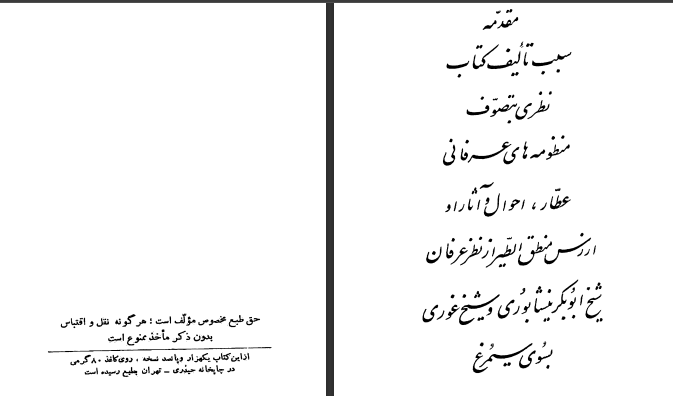 مقدّمه
سبب تألیف کتاب
نظری بتصوّف
منظومه های عرفانی
عطّار ، احوال و آثار او
ارزش منطق الطّیر از نظر عرفان
شیخ ابوبکر نیشابوری و شیخ غوری
بسوی سیمرغ
حق طبع مخصوص مؤلّف است ؛ هرگونه نقل و اقتباس
بدون ذکر مأخذ ممنوع است
ازاین کتاب یکهزار وپانصد نسخه ، روی کاغذ ۸۰ گرمی
در چاپخانه حیدری – تهران بطبع رسیده است